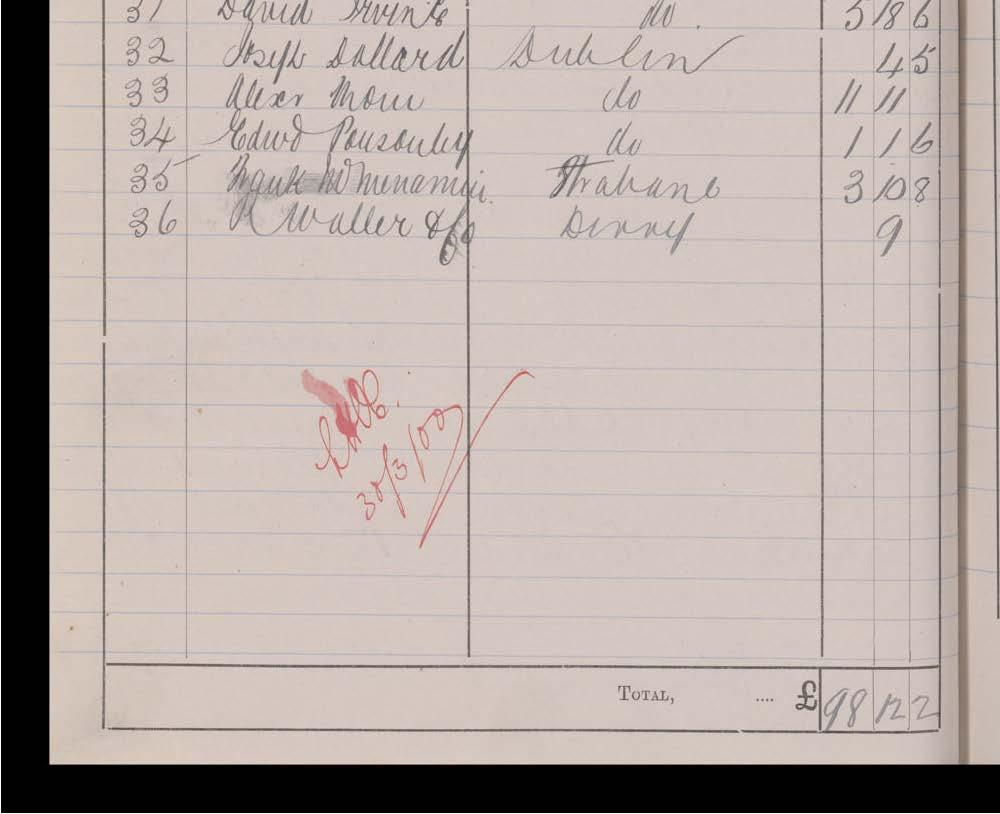 31 David Irvin do. 5 18 6
32 Joseph Dollard Dublin 4 5
33 Alexr Thom do 11 11
34 Edwd Ponsonby do 1 1 6
35 Frank McMenamin. Strabane 3 10 8
36 R Waller & Co Derry 9
30/3/00
TOTAL, .... £ 98 12 2